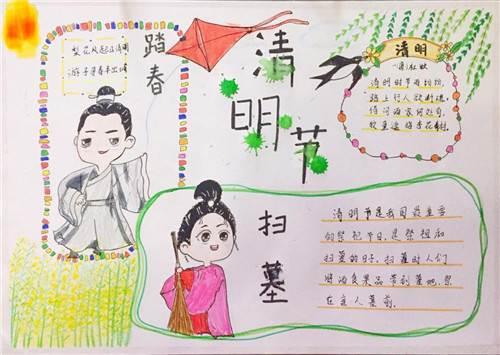 梨花风起正清明
游子寻春半出城
踏春
清明节
清明
(唐)杜牧
清明时节雨纷纷,
路上行人欲断魂。
借问酒家何处有,
牧童遥指杏花村。
扫墓
清明节是我国最重要
的祭祀节日,是祭祖和
扫墓的日子。扫墓时人们
将酒食果品带到墓地,祭
在主人墓前。